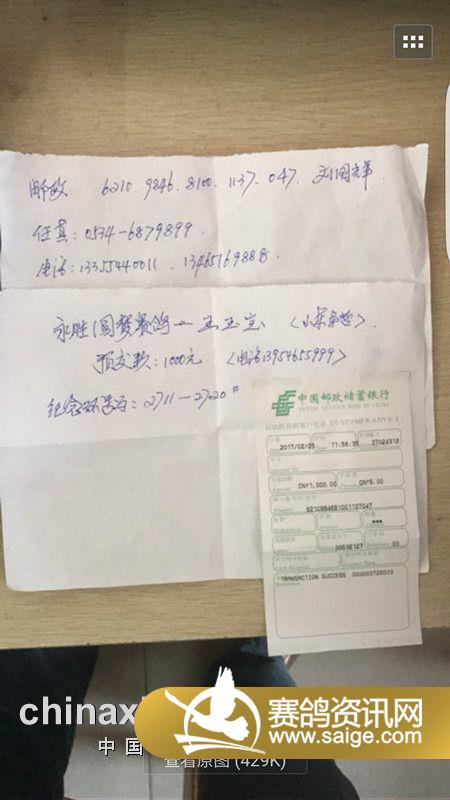 邮政 6210.9846.8100.1137.047. 刘国祥
传真：0534-6879899
电话：13355440011 . 13465169888
永胜（圆梦赛鸽一 王玉宝
预交款：1000元 （电话13954655999）
纪念环号：2711－2720#
中国邮政储蓄银行
POSTAL SAVINGS BANK OF CHINA
CUSTOMER ADVICE
2017/02/25 11:56:30 37024312
CNY1,000.00 CNY5.00
6210984681001137047
***
00596127 00
TRANSACTION SUCCESS 000003720503
chinax
中国
赛鸽资讯网
www.saige.com
查看原图 (429K)